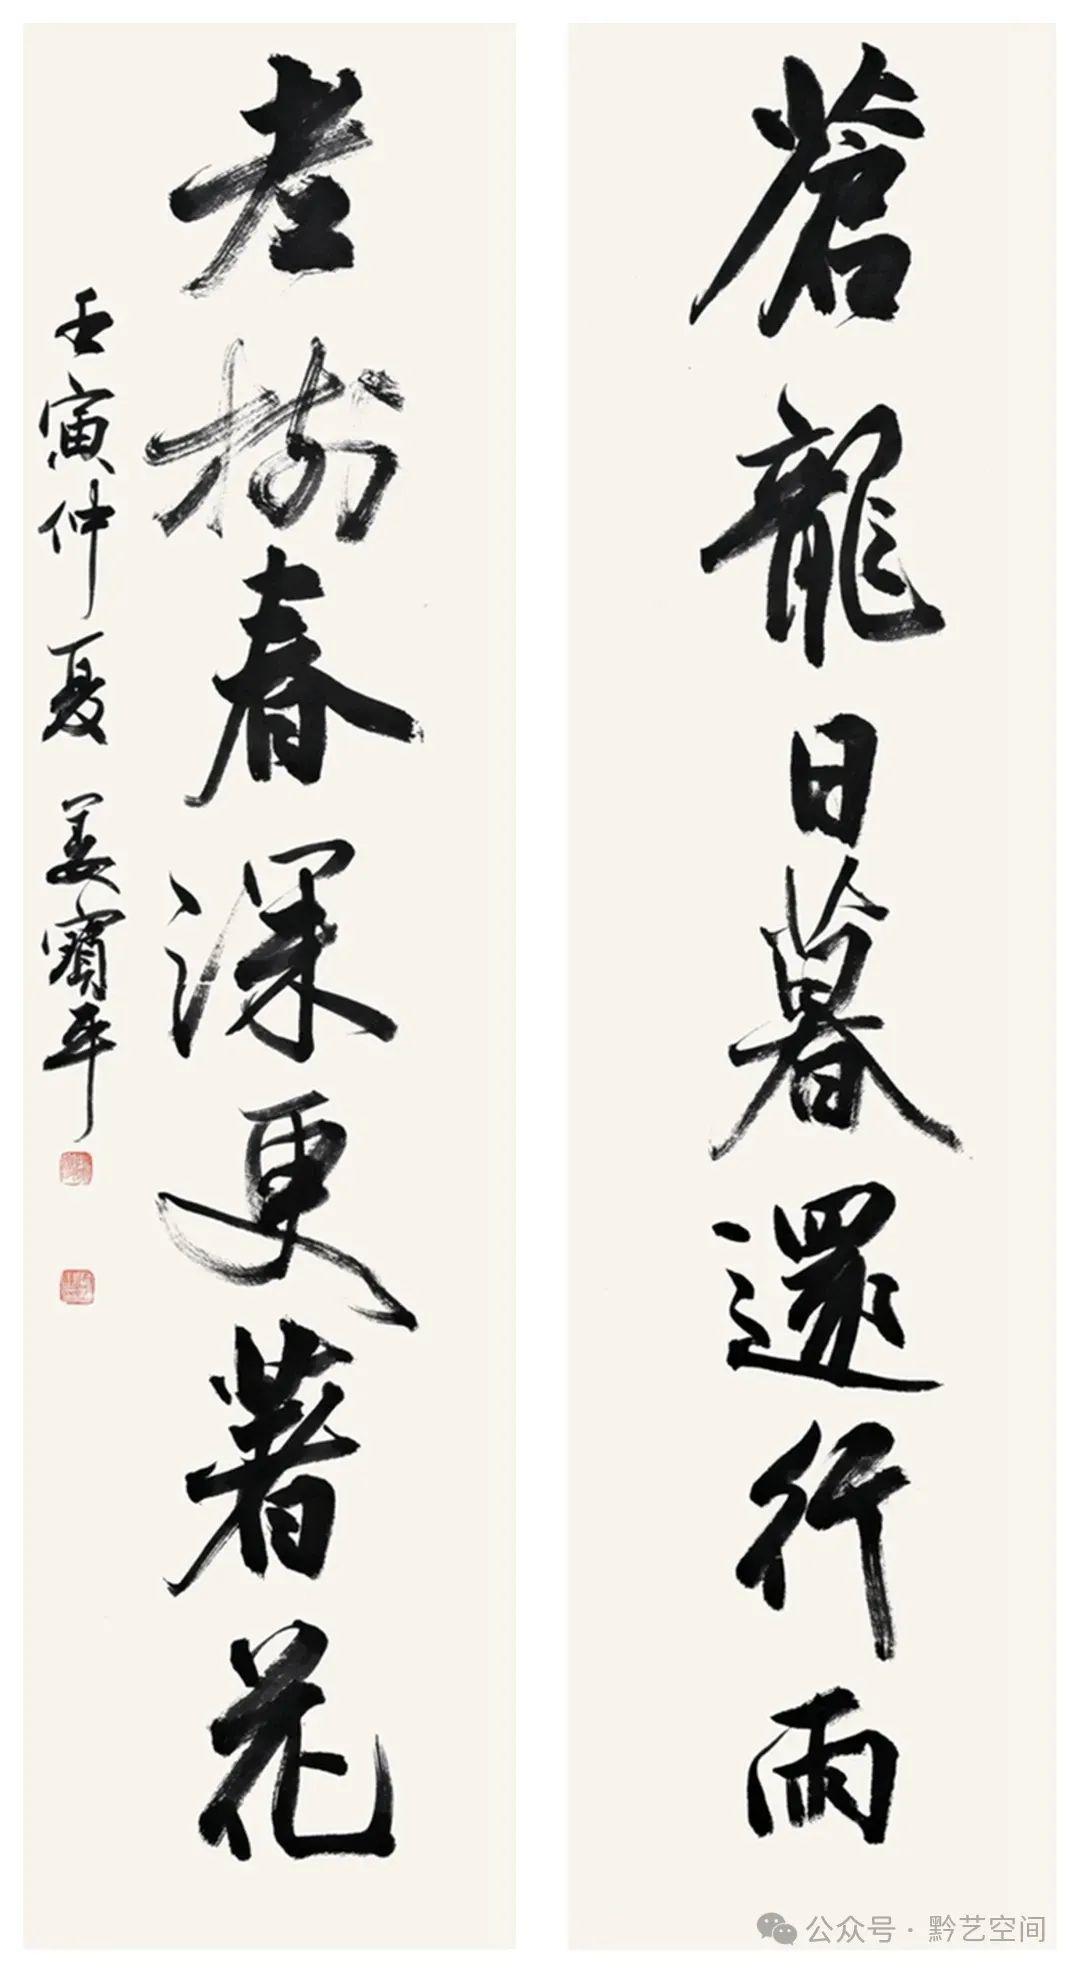 蒼龍日暮還行雨
老樹春深更著花
壬寅仲夏 姜寶平
公众号·黔艺空间